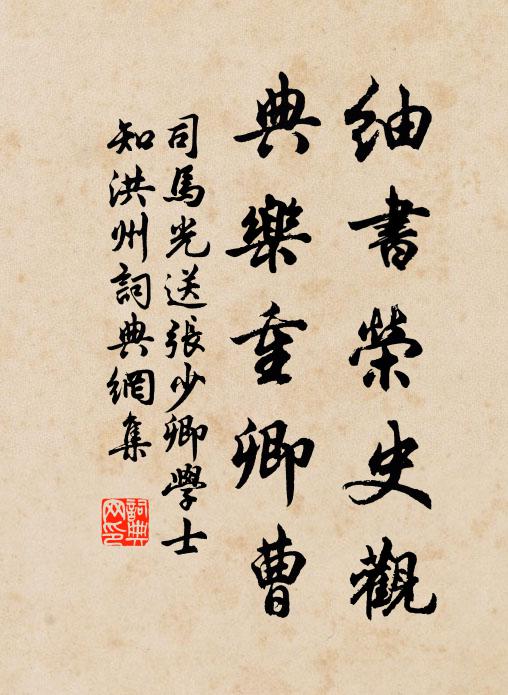 紬書榮史觀
典樂重卿曹
司馬光送張少卿學士
知洪州詞典網集
詞典网印